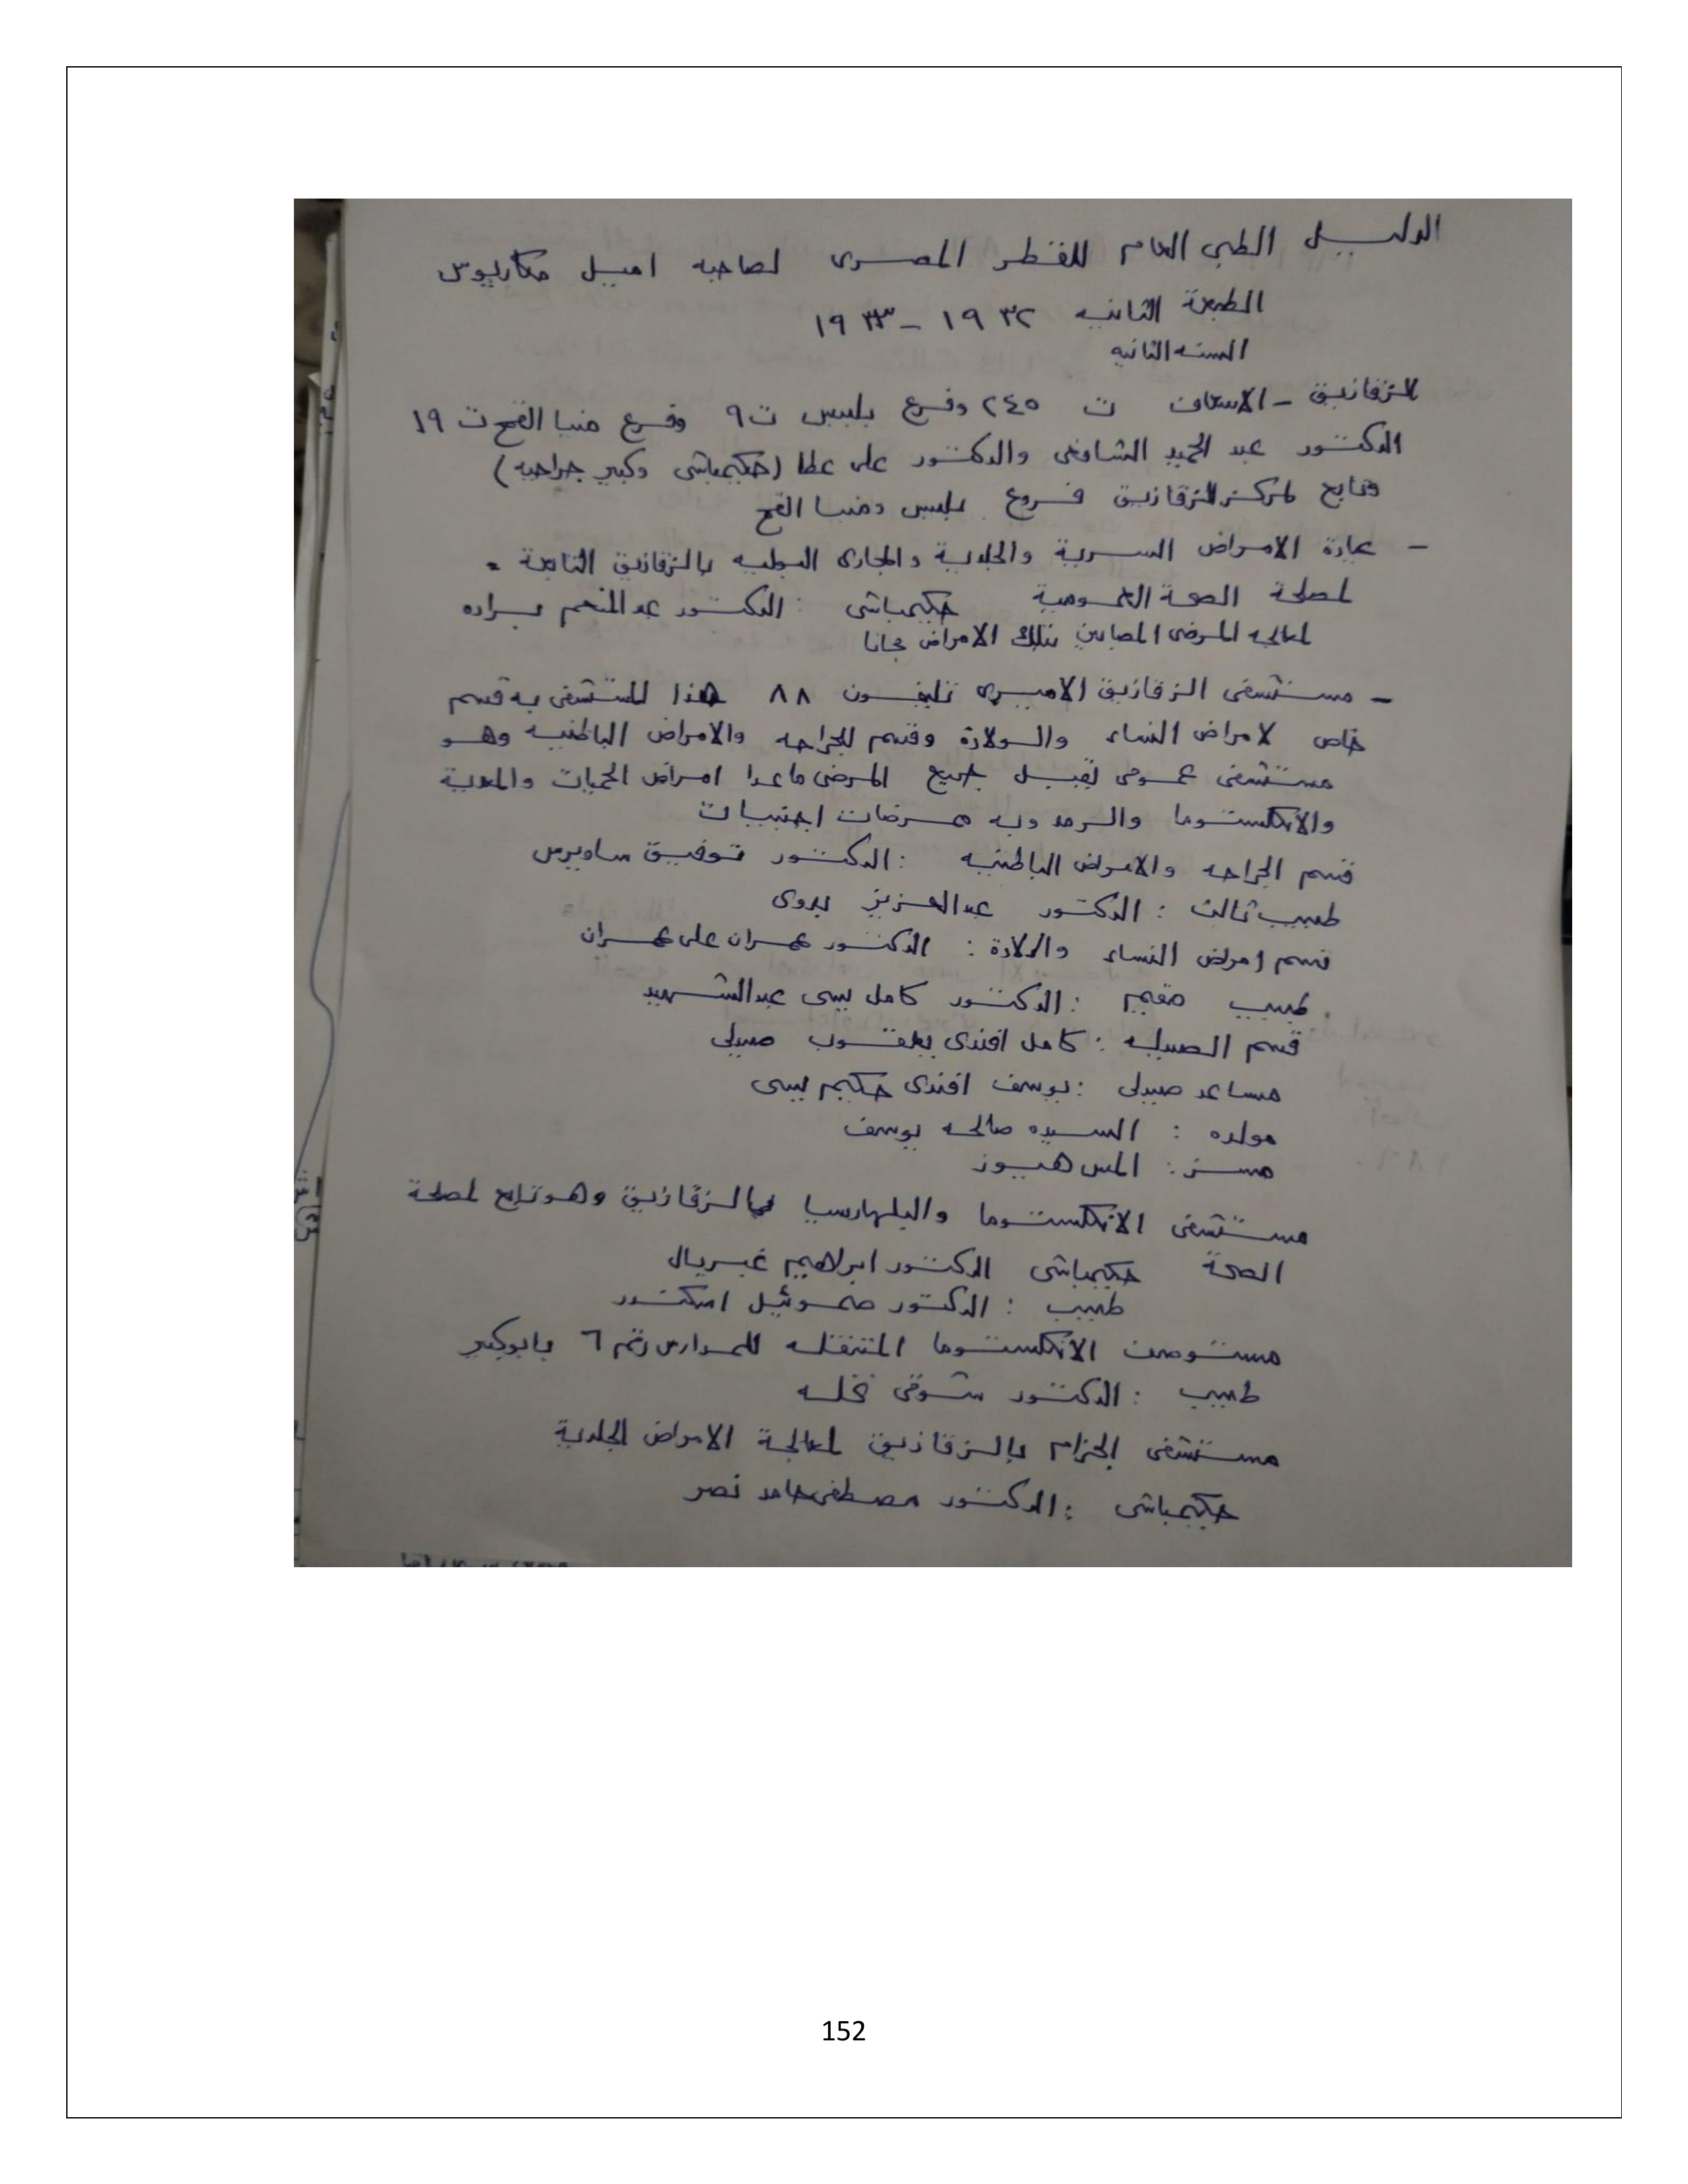 الدليل الطبي العام للقطر المصرى لصاحبه اميل مكاريوس
الطبعة الثانيه ١٩٣٢ - ١٩٣٣
السنه الثانيه
الزقازيق - الاسعاف ت ٢٤٥ وفرع بلبيس ت ٩ وفرع منيا القمح ت ١٩
الدكتور عبد الحميد الشافعى والدكتور على عطا (حكيمباشى وكبير جراحيه)
وتابع لمركز الزقازيق فروع بلبيس ومنيا القمح
- عيادة الامراض السرية والجلدية والمجارى البوليه بالزقازيق التابعة
لمصلحة الصحة العمومية حكيمباشى : الدكتور عبد المنعم براده
لمعالجه المرضى المصابين بتلك الامراض مجانا
- مستشفى الزقازيق الاميرى تليفون ٨٨ هذا المستشفى به قسم
خاص لامراض النساء والولادة وقسم للجراحه والامراض الباطنيه وهو
مستشفى عمومى يقبل جميع المرضى ماعدا امراض الحميات والمعدية
والانكلستوما والرمد وبه ممرضات اجنبيات
قسم الجراحه والامراض الباطنيه : الدكتور توفيق ساويرس
طبيب ثالث : الدكتور عبد العزيز بدوى
قسم امراض النساء والولادة : الدكتور عمران على عمران
طبيب مقيم : الدكتور كامل يسى عبد الشهيد
قسم الصيدليه : كامل افندى يعقوب صيدلى
مساعد صيدلى : يوسف افندى حكيم يسى
مولده : السيده صالحه يوسف
مسـتر : المس هيوز
مستشفى الانكلستوما والبلهارسيا بالزقازيق وهو تابع لمصلحة
الصحة حكيمباشى الدكتور ابراهيم غبريال
طبيب : الدكتور صموئيل اسكندر
مستوصف الانكلستوما المتنقله للمدارس رقم ٦ بابوكبير
طبيب : الدكتور شوقى نخله
مستشفى الجزام بالزقازيق لمعالجة الامراض الجلدية
حكيمباشى : الدكتور مصطفى حامد نصر
152